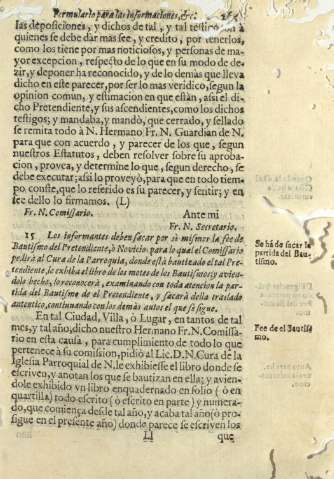 Formulario para las informaciones, &c. 265
las deposiciones, y dichos de tal, y tal testigo son à
quienes se debe dàr mas fee, y credito, por tenerlos,
como los tiene por mas noticiosos, y personas de ma-
yor excepcion, respecto de lo que en su modo de de-
zir, y deponer ha reconocido, y de lo demàs que lleva
dicho en este parecer, por ser lo mas veridico, segun la
opinion comun, y estimacion en que estàn, assi el di-
cho Pretendiente, y sus ascendientes, como los dichos
testigos; y mandaba, y mandò, que cerrado, y sellado
se remita todo à N. Hermano Fr. N. Guardian de N.
para que con acuerdo, y parecer de los que, segun
nuestros Estatutos, deben resolver sobre su aproba-
cion, provea, y determine lo que, segun derecho, se
debe executar; assi lo proveyò, para que en todo tiem-
po conste, que lo referido es su parecer, y sentir; y en
fee dello lo firmamos. (L)
Fr. N. Comissario. Ante mi
Fr. N. Secretario.
15 Los informantes deben sacar por sì mismos la fee de
Bautismo del Pretendiente, ò Novicio: para lo qual el Comissario
pedirà al Cura de la Parroquia, donde està bautizado el tal Pre-
tendiente, le exhiba el libro de los de los Bautismos; y avien-
dolo hecho, lo reconocerà, examinando con toda atencion la par-
tida del Bautismo de el Pretendiente, y sacarà della traslado
autentico, continuando con los demàs autos el que se sigue.
Se hà de sacar la
partida del Bau-
tismo.
En tal Ciudad, Villa, ò Lugar, en tantos de tal
mes, y tal año, dicho nuestro Hermano Fr. N. Comissa-
rio en esta causa, para cumplimiento de todo lo que
pertenece à su comission, pidiò al Lic. D. N. Cura de la
Iglesia Parroquial de N. le exhibiesse el libro donde se
escriven, y anotan los que se bautizan en ella; y avien-
dole exhibido vn libro enquadernado en folio (ò en
quartilla) todo escrito (ò escrito en parte) y numera-
do, que comiença desde tal año, y acaba tal año (ò pro-
sigue en el presente año) donde parece se escriven los
Fee de el Bautis-
mo.
Ll que